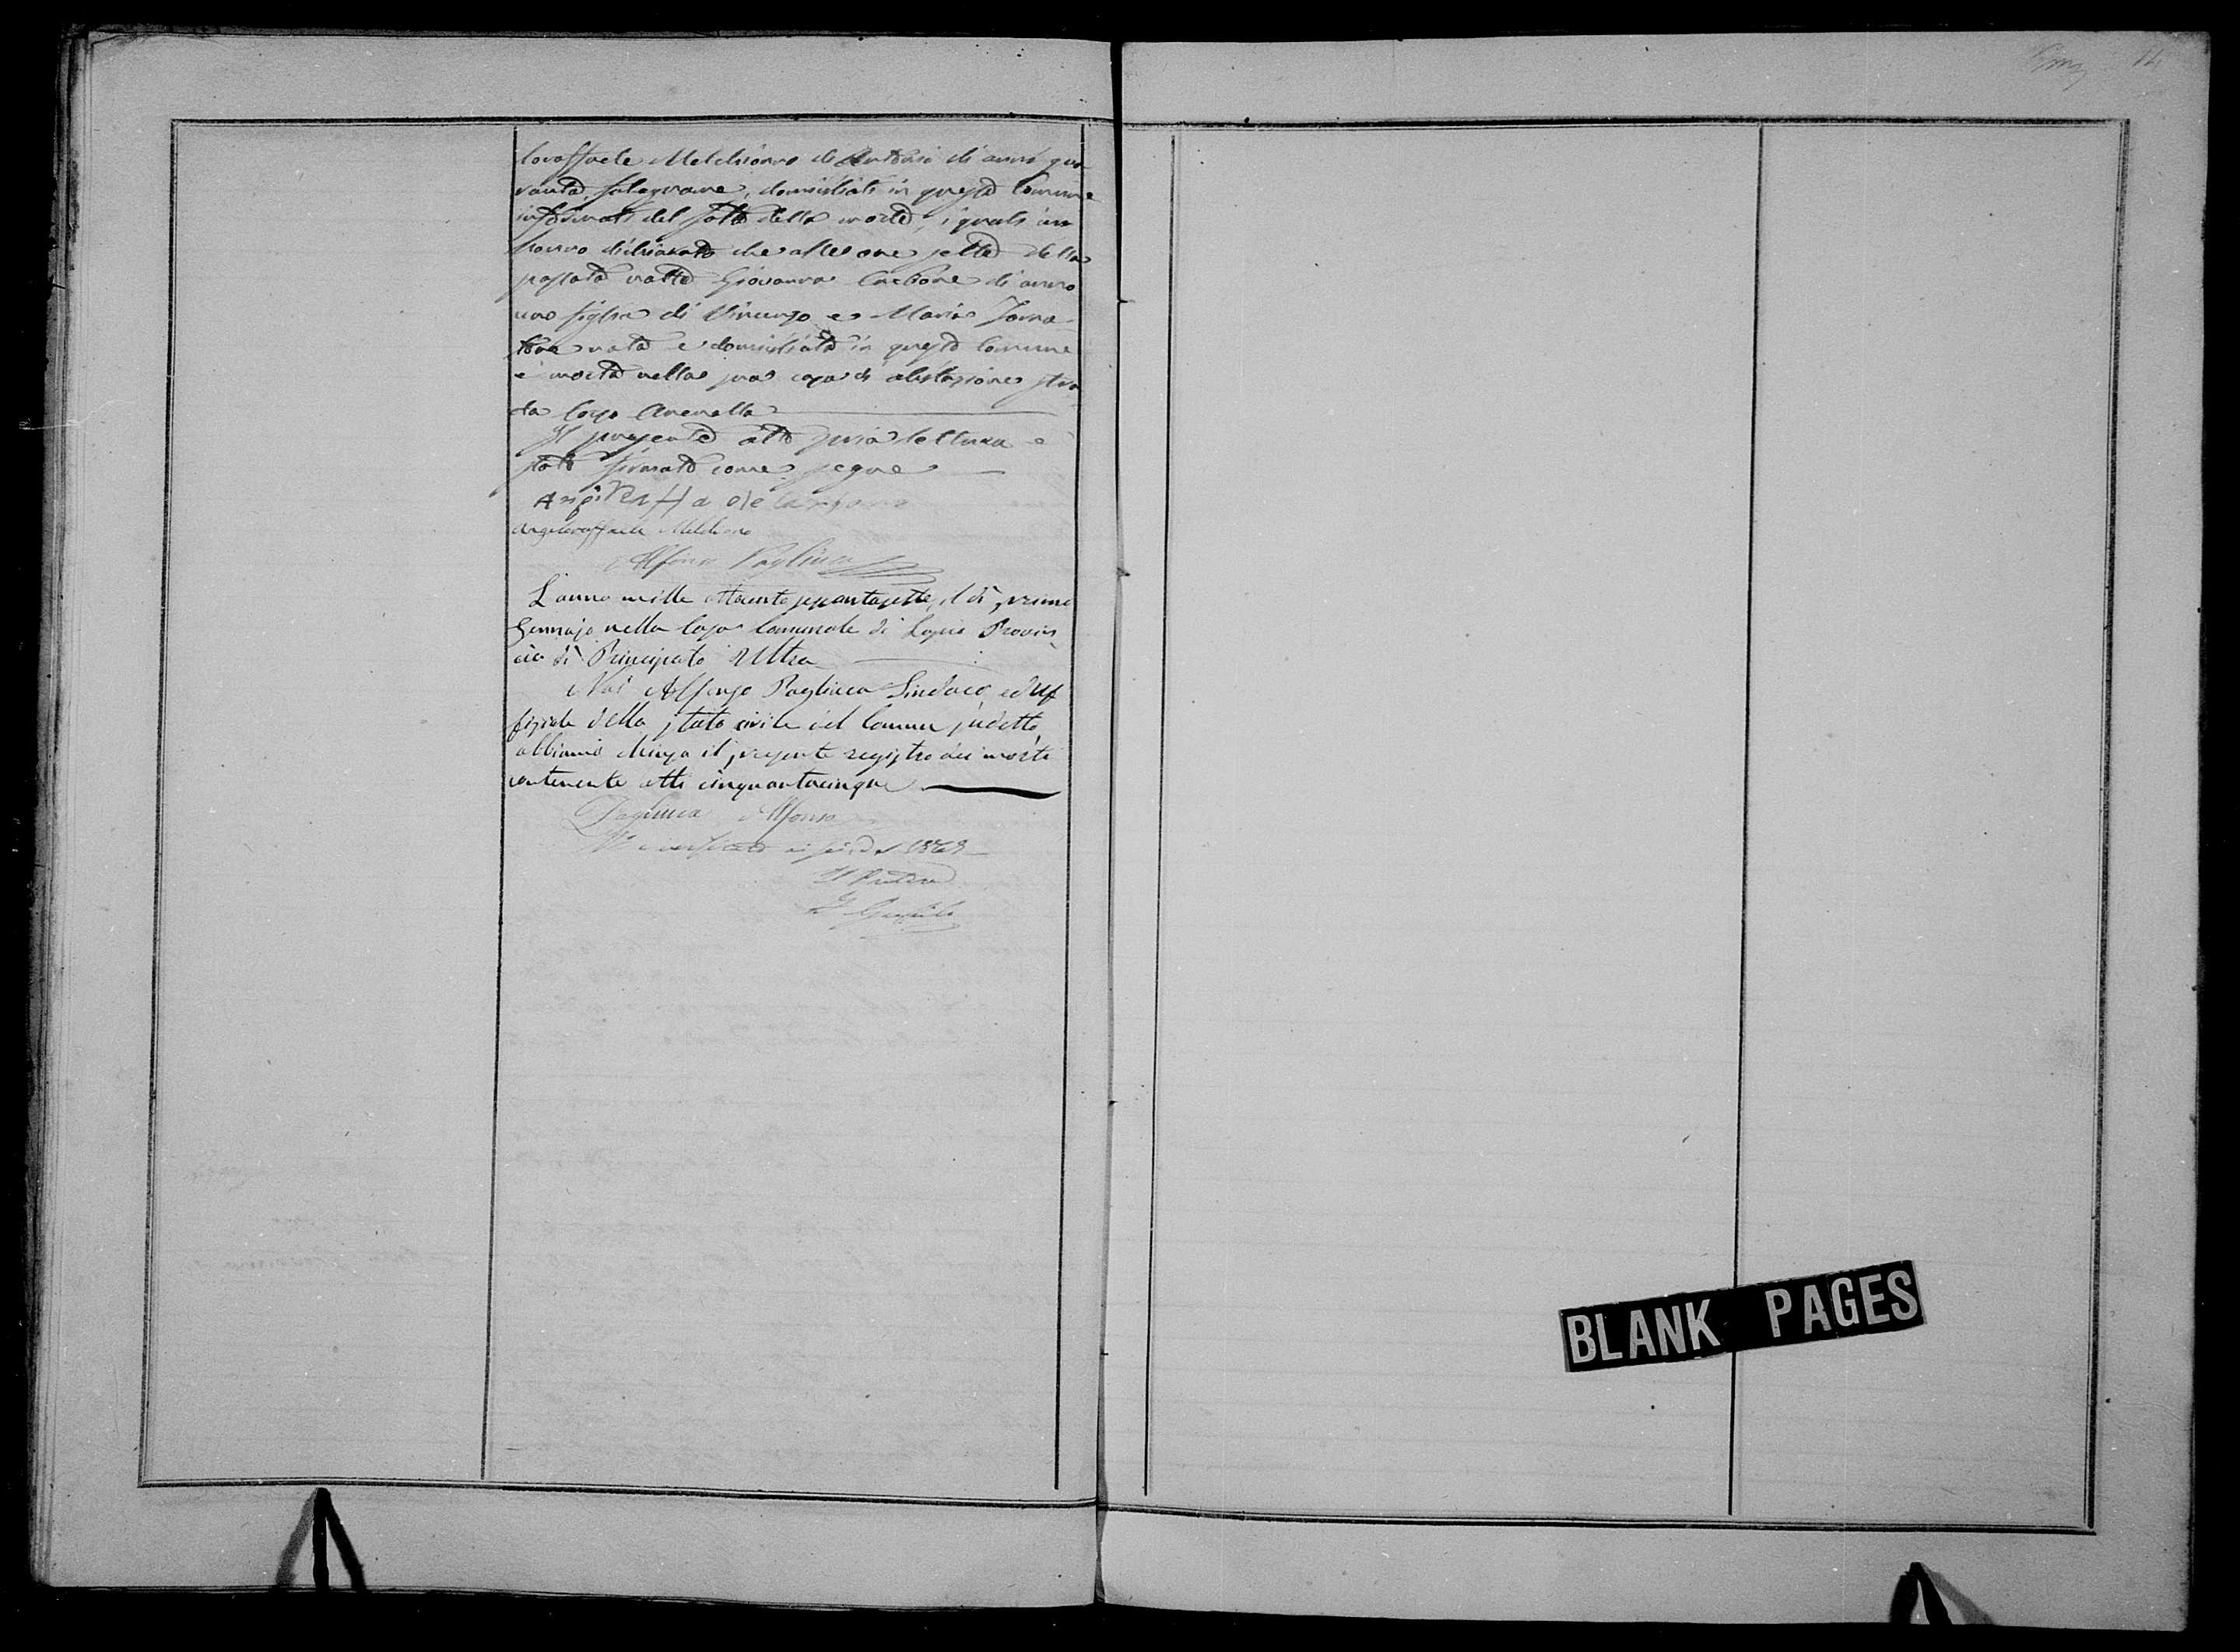 loraffaele Melchionno di Antonio di anni qua
ranta, falegname, domiciliati in questo Comune
informati del fatto della morte, i quali an
hanno dichiarato che alle ore sette della
passata notte Giovanna Carbone di anno
uno figlia di Vincenzo e Maria
nata e domiciliata in questo Comune
è morta nella sua casa di abitazione stra
da Capo Arenella
Il presente atto previa lettura è
stato firmato come segue
Angeloraffaele Melchionno
Alfonso Pagliuca
L'anno mille ottocento sessantasette, il dì primo
Gennajo nella Casa Comunale di Lapio Provin
cia di Principato Ultra
Noi Alfonso Pagliuca Sindaco, ed Uf
fiziale dello stato civile del Comune sudetto,
abbiamo chiuso il presente registro dei morti
contenente atti cinquantacinque
Pagliuca Alfonso
Il Pretore
BLANK PAGES